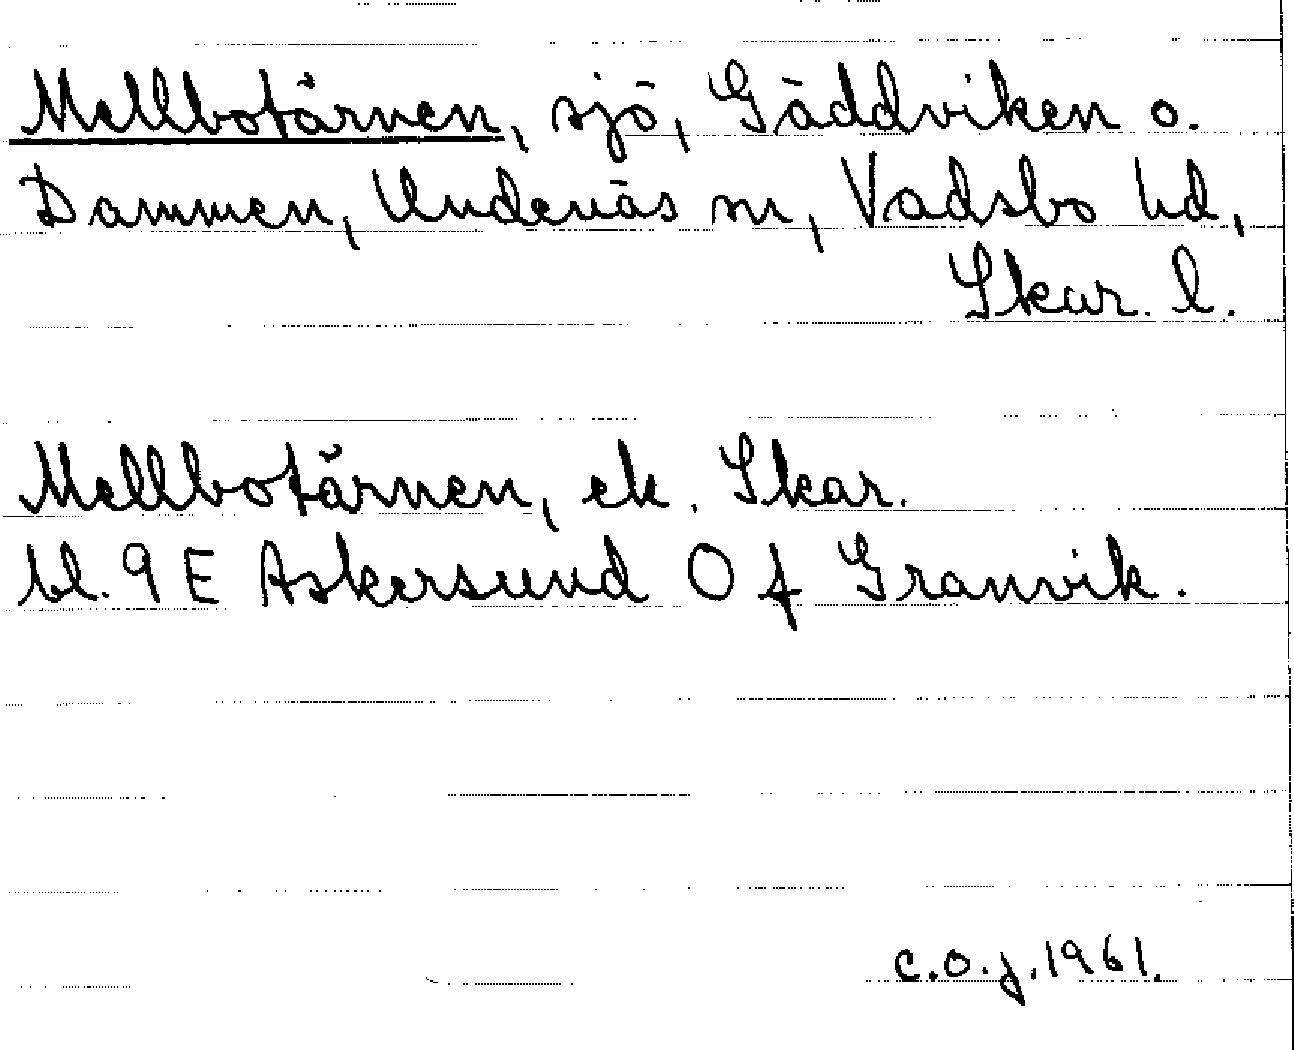 Mellbotärnen, sjö, Gäddviken o.
Dammen, Undenäs sn, Vadsbo hd,
Skar. l.
Mellbotärnen, ek. Skar.
bl. 9 E Askersund 0 f Granvik.
C.O.J. 1961.